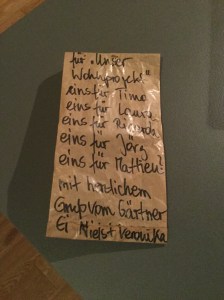 für "Unser
Wohnprojekt"
eins für Timo
eins für Laura
eins für Ricarda
eins für Jörg
eins für Mathieu
mit herzlichem
Gruß vom Gärtner
Veronika